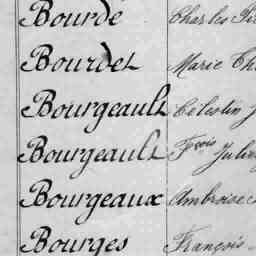 Bourdé Charles
Bourdet Marie
Bourgeault Célestin
Bourgeault Fçois Julien
Bourgeaux Ambroise
Bourges François